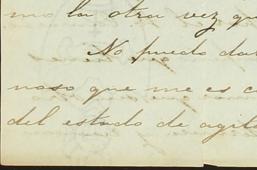 mo la otra vez qu
No puedo da
noso que me es c
del estado de agit